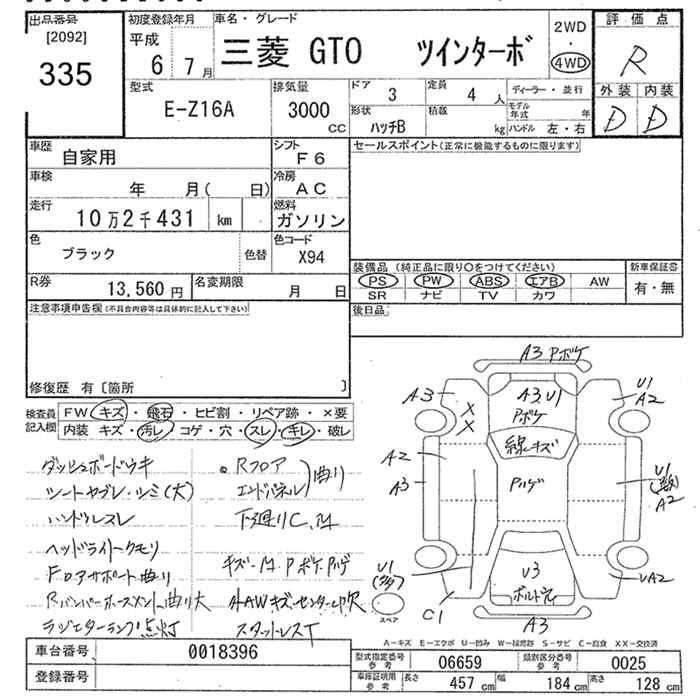 出品番号 [2092] 335
初度登録年月 平成 6 7月
車名・グレード 三菱 GTO ツインターボ
2WD・4WD
評価点 R
外装 内装
D D
型式 E-Z16A
排気量 3000 CC
ドア 3
定員 4 人
ディーラー・並行
形状 ハッチB
積載 kg
モデル年式 年
ハンドル 左・右
車歴 自家用
シフト F6
セールスポイント(正常に機能するものに限ります)
車検 年 月( 日)
冷房 AC
走行 10万2千431 km
燃料 ガソリン
色 ブラック 色替
色コード X94
装備品 (純正品に限り○をつけてください)
新車保証書
PS PW ABS エアB AW 有・無
SR ナビ TV カワ
R券 13,560円
名変期限 月 日
注意事項申告欄(不具合内容等は具体的に記入して下さい)
後日品
修復歴 有〔箇所 〕
検査員記入欄
FW キズ・飛石・ヒビ割・リペア跡・×要
内装 キズ・汚レ・コゲ・穴・スレ・キレ・破レ
ダッシュボードウキ
シートヤブレ・シミ(大)
ハンドルスレ
ヘッドライトクモリ
Fロアサポート曲り
Rバンパーホースメント曲り大
ラジエターランプ点灯
Rフロア
エンドパネル 曲り
下廻りC
キズ
スタットレスT
A3 Pボケ
A3
A3.U1
Pボケ
U1
A2
X
X
線キズ
A2
A3
Pハゲ
U1
A2
U1
(多)
U3
UA2
C1
A3
スペア
A-キズ E-エクボ U-凹み W-補修跡 S-サビ C-腐食 XX-交換済
車台番号 0018396
型式指定番号 参考 06659
類別区分番号 参考 0025
登録番号
車庫証明用 参考 長さ 457cm 幅 184cm 高さ 128cm